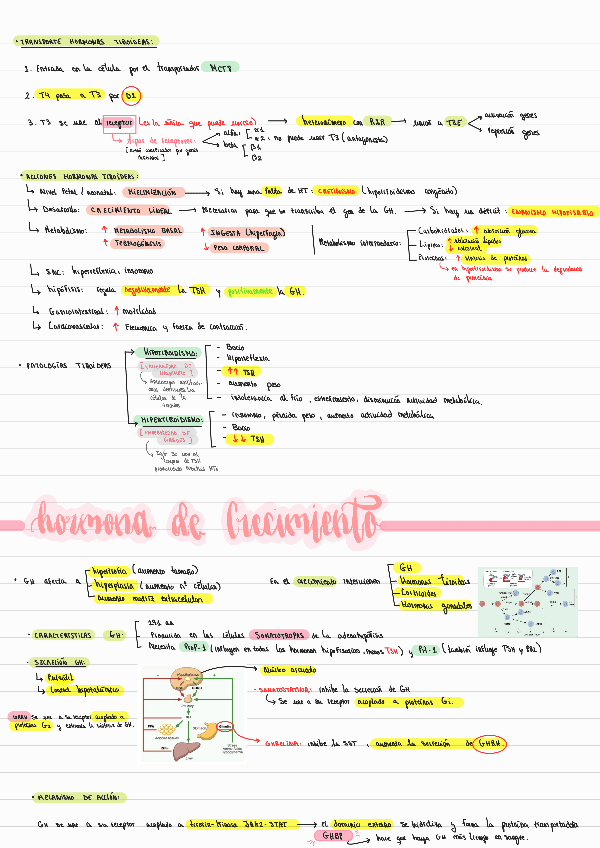 • TRANSPORTE HORMONAS TIROIDEAS:
1. Entrada en la célula por el transportador MCT8
2. T4 pasa a T3 por D1
3. T3 se une al receptor (es la única que puede unirse) → heterodímero con RXR → unión a TRE → activación genes
→ represión genes
→ tipos de receptores:
alfa: α1
α2: no puede unir T3 (antagonista)
beta: β1
β2
• ACCIONES HORMONAS TIROIDEAS:
↳ Nivel fetal / neonatal: MIELINIZACIÓN → Si hay una falta de HT: CRETINISMO (hipotiroidismo congénito)
↳ Desarrollo: CRECIMIENTO LINEAL → Necesarias para que se transcriba el gen de la GH. → Si hay un déficit: ENANISMO HIPOFISARIO
↳ Metabolismo: ↑ METABOLISMO BASAL ↑ INGESTA (hiperfagia)
↑ TERMOGÉNESIS ↓ PESO CORPORAL
Metabolismo intermediario:
Carbohidratos: ↑ absorción glucosa
Lípidos: ↑ oxidación lípidos
↓ colesterol
Proteínas: ↑ síntesis de proteínas
↳ en hipertiroidismo se produce la degradación de proteína
↳ SNC: hiperreflexia, insomnio
↳ hipófisis: regula negativamente la TSH y positivamente la GH.
↳ Gastrointestinal: ↑ motilidad
↳ Cardiovascular: ↑ Frecuencia y fuerza de contracción.
• PATOLOGÍAS TIROIDEAS
HIPOTIROIDISMO:
[ENFERMEDAD DE HASHIMOTO]
- Bocio
- hiporreflexia
- ↑↑ TSH
- aumento peso
- intolerancia al frío, estreñimiento, disminución actividad metabólica.
HIPERTIROIDISMO:
[ENFERMEDAD DE GRAVES]
- insomnio, pérdida peso, aumento actividad metabólica,
- Bocio
- ↓↓ TSH
hormona de Crecimiento
• GH afecta a
hipertrofia (aumento tamaño)
hiperplasia (aumento nº células)
aumento matriz extracelular
En el crecimiento intervienen
GH
Hormonas tiroideas
Corticoides
Hormonas gonadales
- CARACTERÍSTICAS GH:
191 aa
Producida en las células SOMATOTROPAS de la adenohipófisis
Necesita PROP-1 (influyen en todas las hormonas hipofisarias menos TSH) y Pit-1 (también influye TSH y PRL)
- SECRECIÓN GH:
↳ Pulsátil
↳ Control hipotalámico
GHRH se une a su receptor acoplado a proteínas Gs y estimula la síntesis de GH.
Núcleo arcuato
- SOMATOSTATINA: inhibe la secreción de GH
↳ Se une a su receptor acoplado a proteínas Gi.
GHRELINA: inhibe la SST, aumenta la secreción de GHRH
• MECANISMO DE ACCIÓN:
GH se une a su receptor acoplado a tirosin-kinasa JAK2-STAT → el dominio externo se hidroliza y forma la proteína transportadora
GHBP → hace que haya GH más tiempo en sangre.